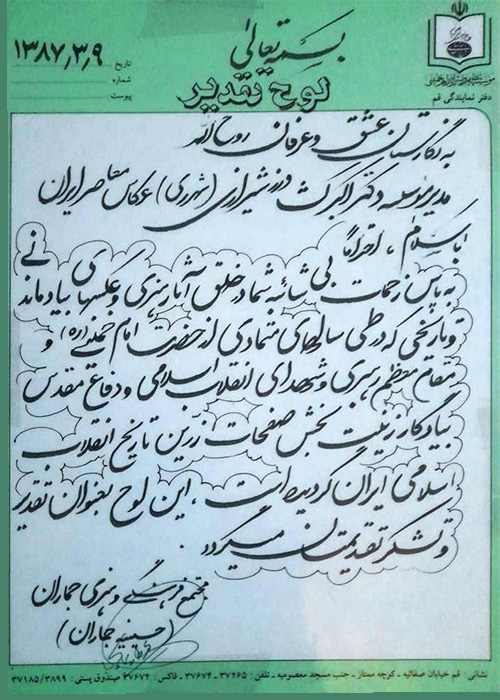 بسمه تعالیٰ
لوح تقدیر
تاریخ ۱۳۸۷٫۳٫۹
شماره
پیوست
دفتر نمایندگی قم
به نگارستان عشق و عرفان روح الله
مدیر مؤسسه دکتر اکبر کشاورز شیرازی (شهرری) عکاس معاصر ایران
با سلام ، احتراماً
به پاس زحمات بی شائبه شما در خلق آثار هنری و عکسهای بیاد ماندنی
و تاریخی که در طی سالهای متمادی از حضرت امام خمینی (ره) و
مقام معظم رهبری و شهدای انقلاب اسلامی و دفاع مقدس
بیادگار زینت بخش صفحات زرین تاریخ انقلاب
اسلامی ایران گردیده است . این لوح بعنوان تقدیر
و تشکر تقدیمتان میگردد .
مجتمع فرهنگی و هنری جماران
(حسینیه جماران)
نشانی : قم خیابان صفائیه - کوچه ممتاز - جنب مسجد معصومیه - تلفن : ۳۷۲۶۵ - ۳۷۶۷۴ - فاکس : ۳۷۶۷۴ صندوق پستی : ۳۷۱۸۵/۳۸۹۹